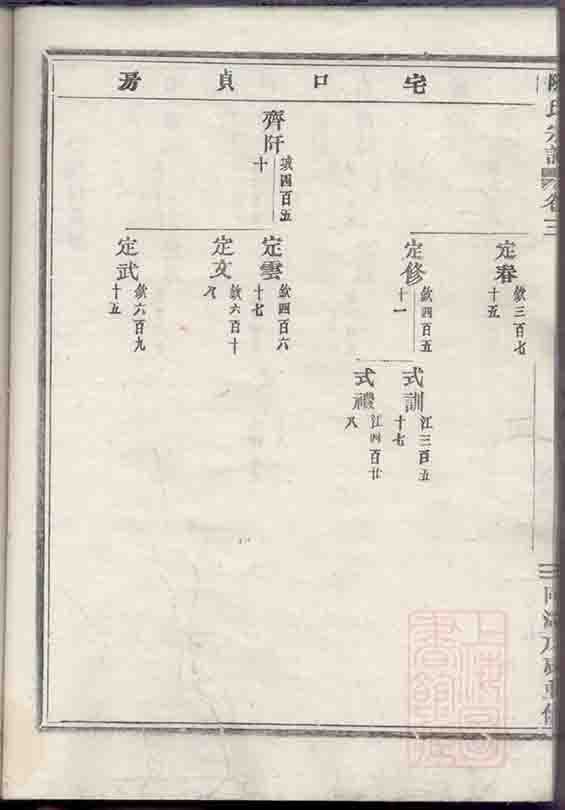 宅口貞房
定春
欽三百七
十五
定修
欽四百五
十一
式訓
江三百五
十七
式禨
江四百廿
八
齊阡
琰四百五
十
定雲
欽四百六
十七
定文
欽六百十
八
定武
欽六百九
十五
上海圖書館藏